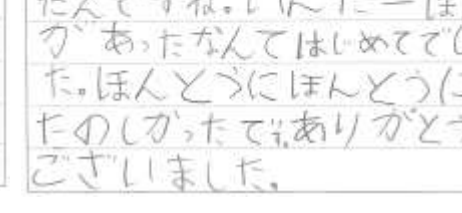 たんですね。いんたーほ
があったなんてはじめてでし
た。ほんとうにほんとうに
たのしかったです。ありがとう
ございました。